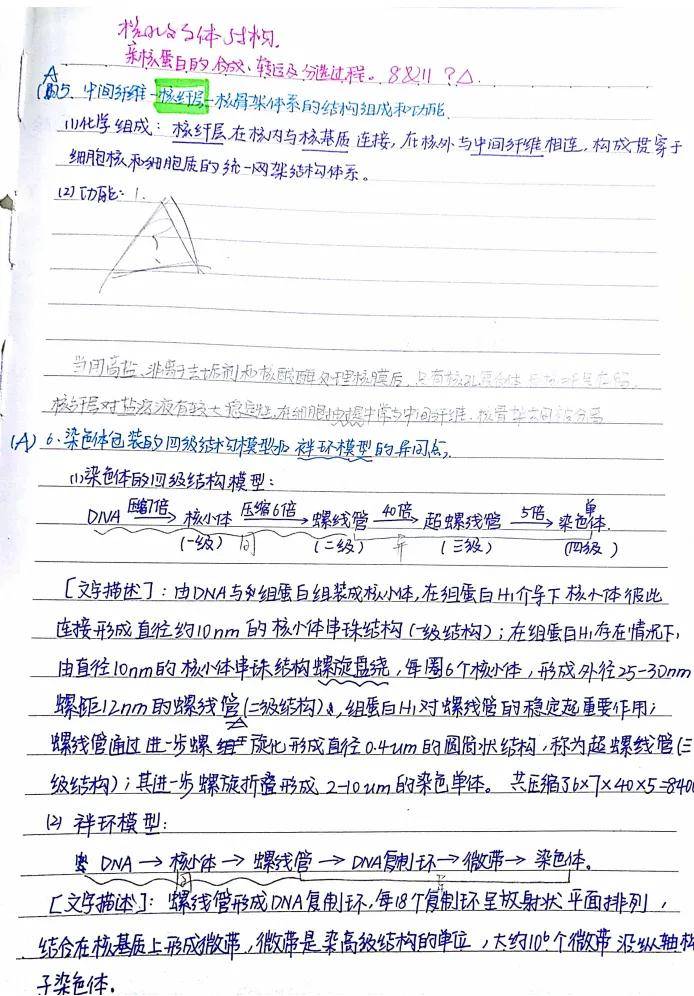 核孔复合体结构.
亲核蛋白的合成、转运及分选过程。8&11 ?△.
A
5. 中间纤维-核纤层-核骨架体系的结构组成和功能.
(1)化学组成：核纤层在核内与核基质连接，在核外与中间纤维相连，构成贯穿于
细胞核和细胞质的统一网架结构体系。
(2)功能：1.
当用高盐、非离子去垢剂和核酸酶处理核膜后，只有核孔复合体
核纤层对盐溶液有较大稳定性，在细胞中常与中间纤维、核骨架共同被分离
(A) 6.染色体包装的四级结构模型和袢环模型的异同点.
(1)染色体的四级结构模型：
DNA 压缩7倍→ 核小体 压缩6倍→ 螺线管 40倍→ 超螺线管 5倍→ 染色单体.
(一级) 同 (二级) 异 (三级) (四级)
[文字描述]：由DNA与组蛋白组装成核小体，在组蛋白H1介导下核小体彼此
连接形成直径约10nm的核小体串珠结构(一级结构)；在组蛋白H1存在情况下，
由直径10nm的核小体串珠结构螺旋盘绕，每圈6个核小体，形成外径25-30nm
螺距12nm的螺线管(二级结构)，组蛋白H1对螺线管的稳定起重要作用；
螺线管通过进一步螺旋化形成直径0.4um的圆筒状结构，称为超螺线管(三
级结构)；其进一步螺旋折叠形成2-10um的染色单体。共压缩了6×7×40×5=8400
(2) 袢环模型：
DNA → 核小体 → 螺线管 → DNA复制环→ 微带→ 染色体。
同 异
[文字描述]：螺线管形成DNA复制环，每18个复制环呈放射状平面排列，
结合在核基质上形成微带，微带是染高级结构的单位，大约10⁶个微带沿纵轴构
子染色体.